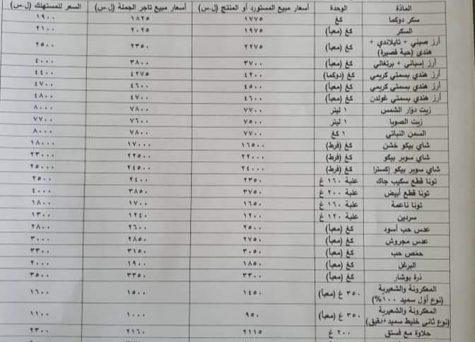 المادة الوحدة أسعار مبيع المستورد أو المنتج (ل.س) أسعار مبيع تاجر الجملة (ل.س) السعر للمستهلك (ل.س)
سكر دوكما كغ ١٧٧٥ ١٨٢٥ ١٩٠٠
السكر كغ (معبأ) ١٩٧٥ ٢٠٢٥ ٢١٠٠
أرز صيني + تايلاندي + هندي (حبة قصيرة) كغ (معبأ) ٢٢٧٥ ٢٣٥٠ ٢٥٠٠
أرز إسباني + برتغالي كغ (معبأ) ٣٧٠٠ ٣٨٠٠ ٤٠٠٠
أرز هندي بسمتي كريمي كغ (دوكما) ٤٢٠٠ ٤٢٧٥ ٤٤٠٠
أرز هندي بسمتي كريمي كغ (معبأ) ٤٥٠٠ ٤٦٠٠ ٤٧٠٠
أرز هندي بسمتي غولدن كغ (معبأ) ٤٦٠٠ ٤٧٠٠ ٤٨٠٠
زيت دوار الشمس ١ ليتر ٧٧٠٠ ٧٨٠٠ ٨٠٠٠
زيت الصويا ١ ليتر ٧٥٠٠ ٧٦٠٠ ٧٧٠٠
السمن النباتي ١ كغ ٧٧٠٠ ٧٨٠٠ ٨٠٠٠
شاي بيكو خشن كغ (فرط) ١٦٥٠٠ ١٧٠٠٠ ١٨٠٠٠
شاي سوبر بيكو كغ (فرط) ٢٢٠٠٠ ٢٢٥٠٠ ٢٣٠٠٠
شاي سوبر بيكو إكسترا كغ (فرط) ٢٤٠٠٠ ٢٤٥٠٠ ٢٥٠٠٠
تونا قطع سكيب جاك علبة ١٦٠ غ ٢٣٥٠ ٢٤٠٠ ٢٥٠٠
تونا قطع أبيض علبة ٢٠٠ غ ٣٧٥٠ ٣٨٥٠ ٤٠٠٠
تونا ناعمة علبة ١٦٠ غ ١٦٥٠ ١٧٠٠ ١٨٠٠
سردين علبة ١٢٠ غ ١٢٠٠ ١٢٤٠ ١٣٠٠
عدس حب أسود كغ (معبأ) ٢٥٠٠ ٢٦٠٠ ٢٨٠٠
عدس مجروش كغ (معبأ) ٢٧٥٠ ٢٨٥٠ ٣٠٠٠
حمص حب كغ (معبأ) ٣٠٥٠ ٣١٥٠ ٣٣٠٠
البرغل كغ (معبأ) ١٨٥٠ ١٩٠٠ ٢٠٠٠
ذرة بوشار كغ (معبأ) ٣٣٠٠ ٣٣٥٠ ٣٥٠٠
المعكرونة والشعيرية (نوع أول سميد ١٠٠%) ٣٥٠ غ (معبأ) ١٤٥٠ ١٥٠٠ ١٦٠٠
المعكرونة والشعيرية (نوع ثاني خليط سميد+دقيق) ٣٥٠ غ (معبأ) ٩٥٠ ١٠٠٠ ١١٠٠
حلاوة مع فستق ٢٠٠ غ ٢١١٥ ٢١٦٠ ٢٣٠٠